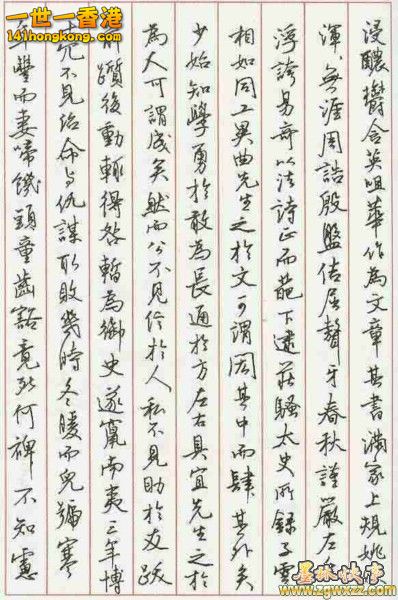 一世一香港
141hongkong.com
浸醲鬱含英咀華作為文章其書滿家上規姚
渾〻無涯周誥殷盤佶屈聱牙春秋謹嚴左
浮誇易奇以法詩正而葩下逮莊騷太史所錄子雲
相如同工異曲先生之於文可謂閎其中而肆其外矣
少始知學勇於敢為長通於方左右具宜先生之於
為人可謂成矣然而公不見信於人私不見助於友跋
前躓後動輒得咎暫為御史遂竄南夷三年博
冗不見治命与仇謀取敗幾時冬暖而兒號寒
年豐而妻啼饑頭童齒豁竟死何裨不知慮
www.zgwxzz.com